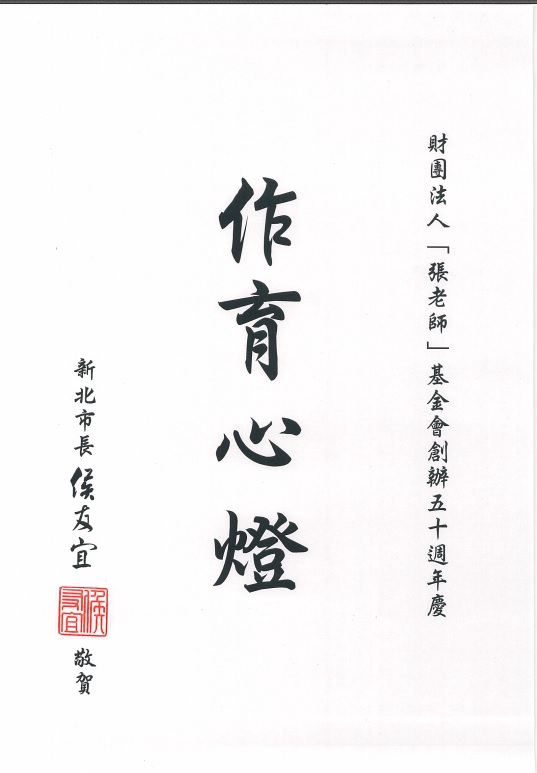 財團法人「張老師」基金會創辦五十週年慶
作育心燈
新北市長 侯友宜 敬賀
侯友宜